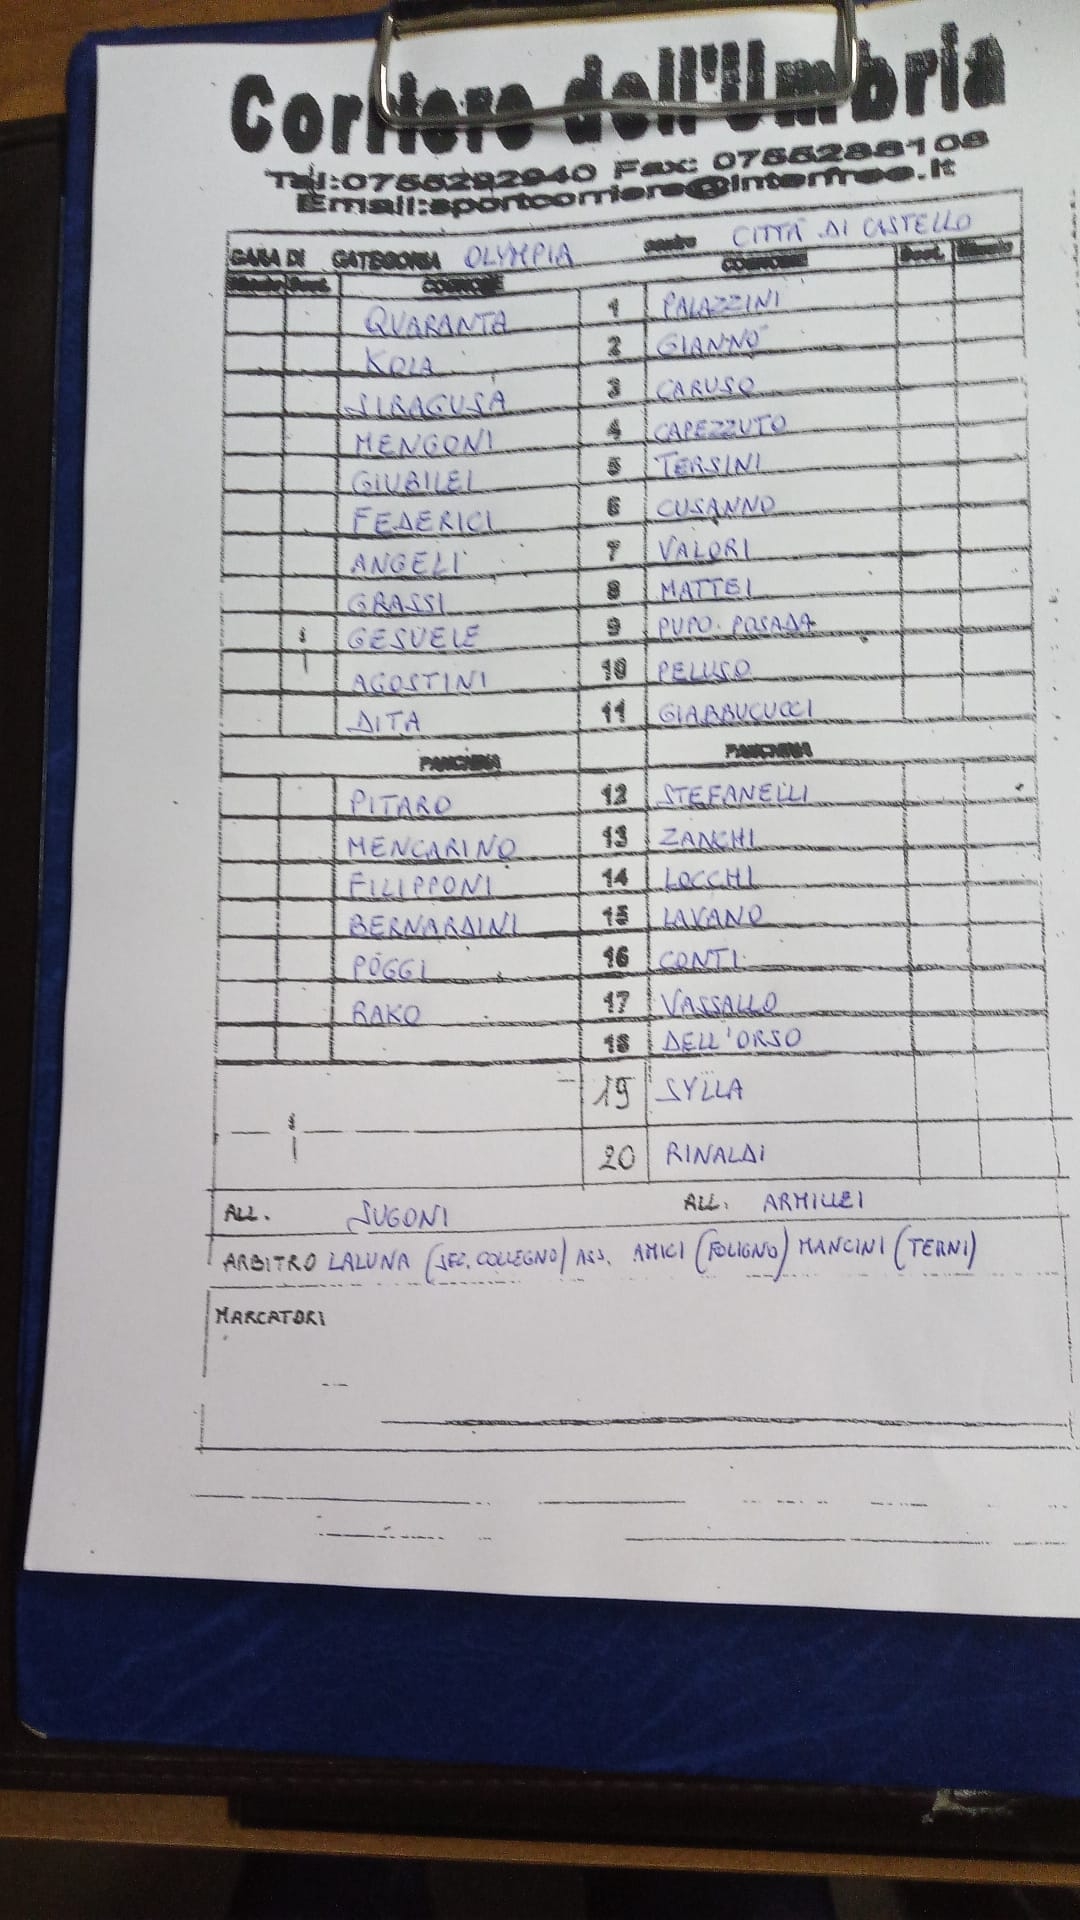 Corriere dell'Umbria
Tel:0755292940 Fax: 0755288108
Email:sportcorriere@interfree.it
GARA DI CATEGORIA OLYMPIA contro CITTÀ DI CASTELLO
Minuto Sost. COGNOME COGNOME Sost. Minuto
QUARANTA 1 PALAZZINI
KOLA 2 GIANNO'
SIRAGUSA 3 CARUSO
MENGONI 4 CAPEZZUTO
GIUBILEI 5 TERSINI
FEDERICI 6 CUSANNO
ANGELI 7 VALORI
GRASSI 8 MATTEI
GESUELE 9 PUPO POSADA
AGOSTINI 10 PELUSO
DITA 11 GIABBUCUCCI
PANCHINA PANCHINA
PITARO 12 STEFANELLI
MENCARINO 13 ZANCHI
FILIPPONI 14 LOCCHI
BERNARDINI 15 LAVANO
POGGI 16 CONTI
RAKO 17 VASSALLO
18 DELL'ORSO
19 SYLLA
20 RINALDI
ALL. SUGONI ALL. ARMILLEI
ARBITRO LALUNA (SEZ. COLLEGNO) ASS. AMICI (FOLIGNO) MANCINI (TERNI)
MARCATORI